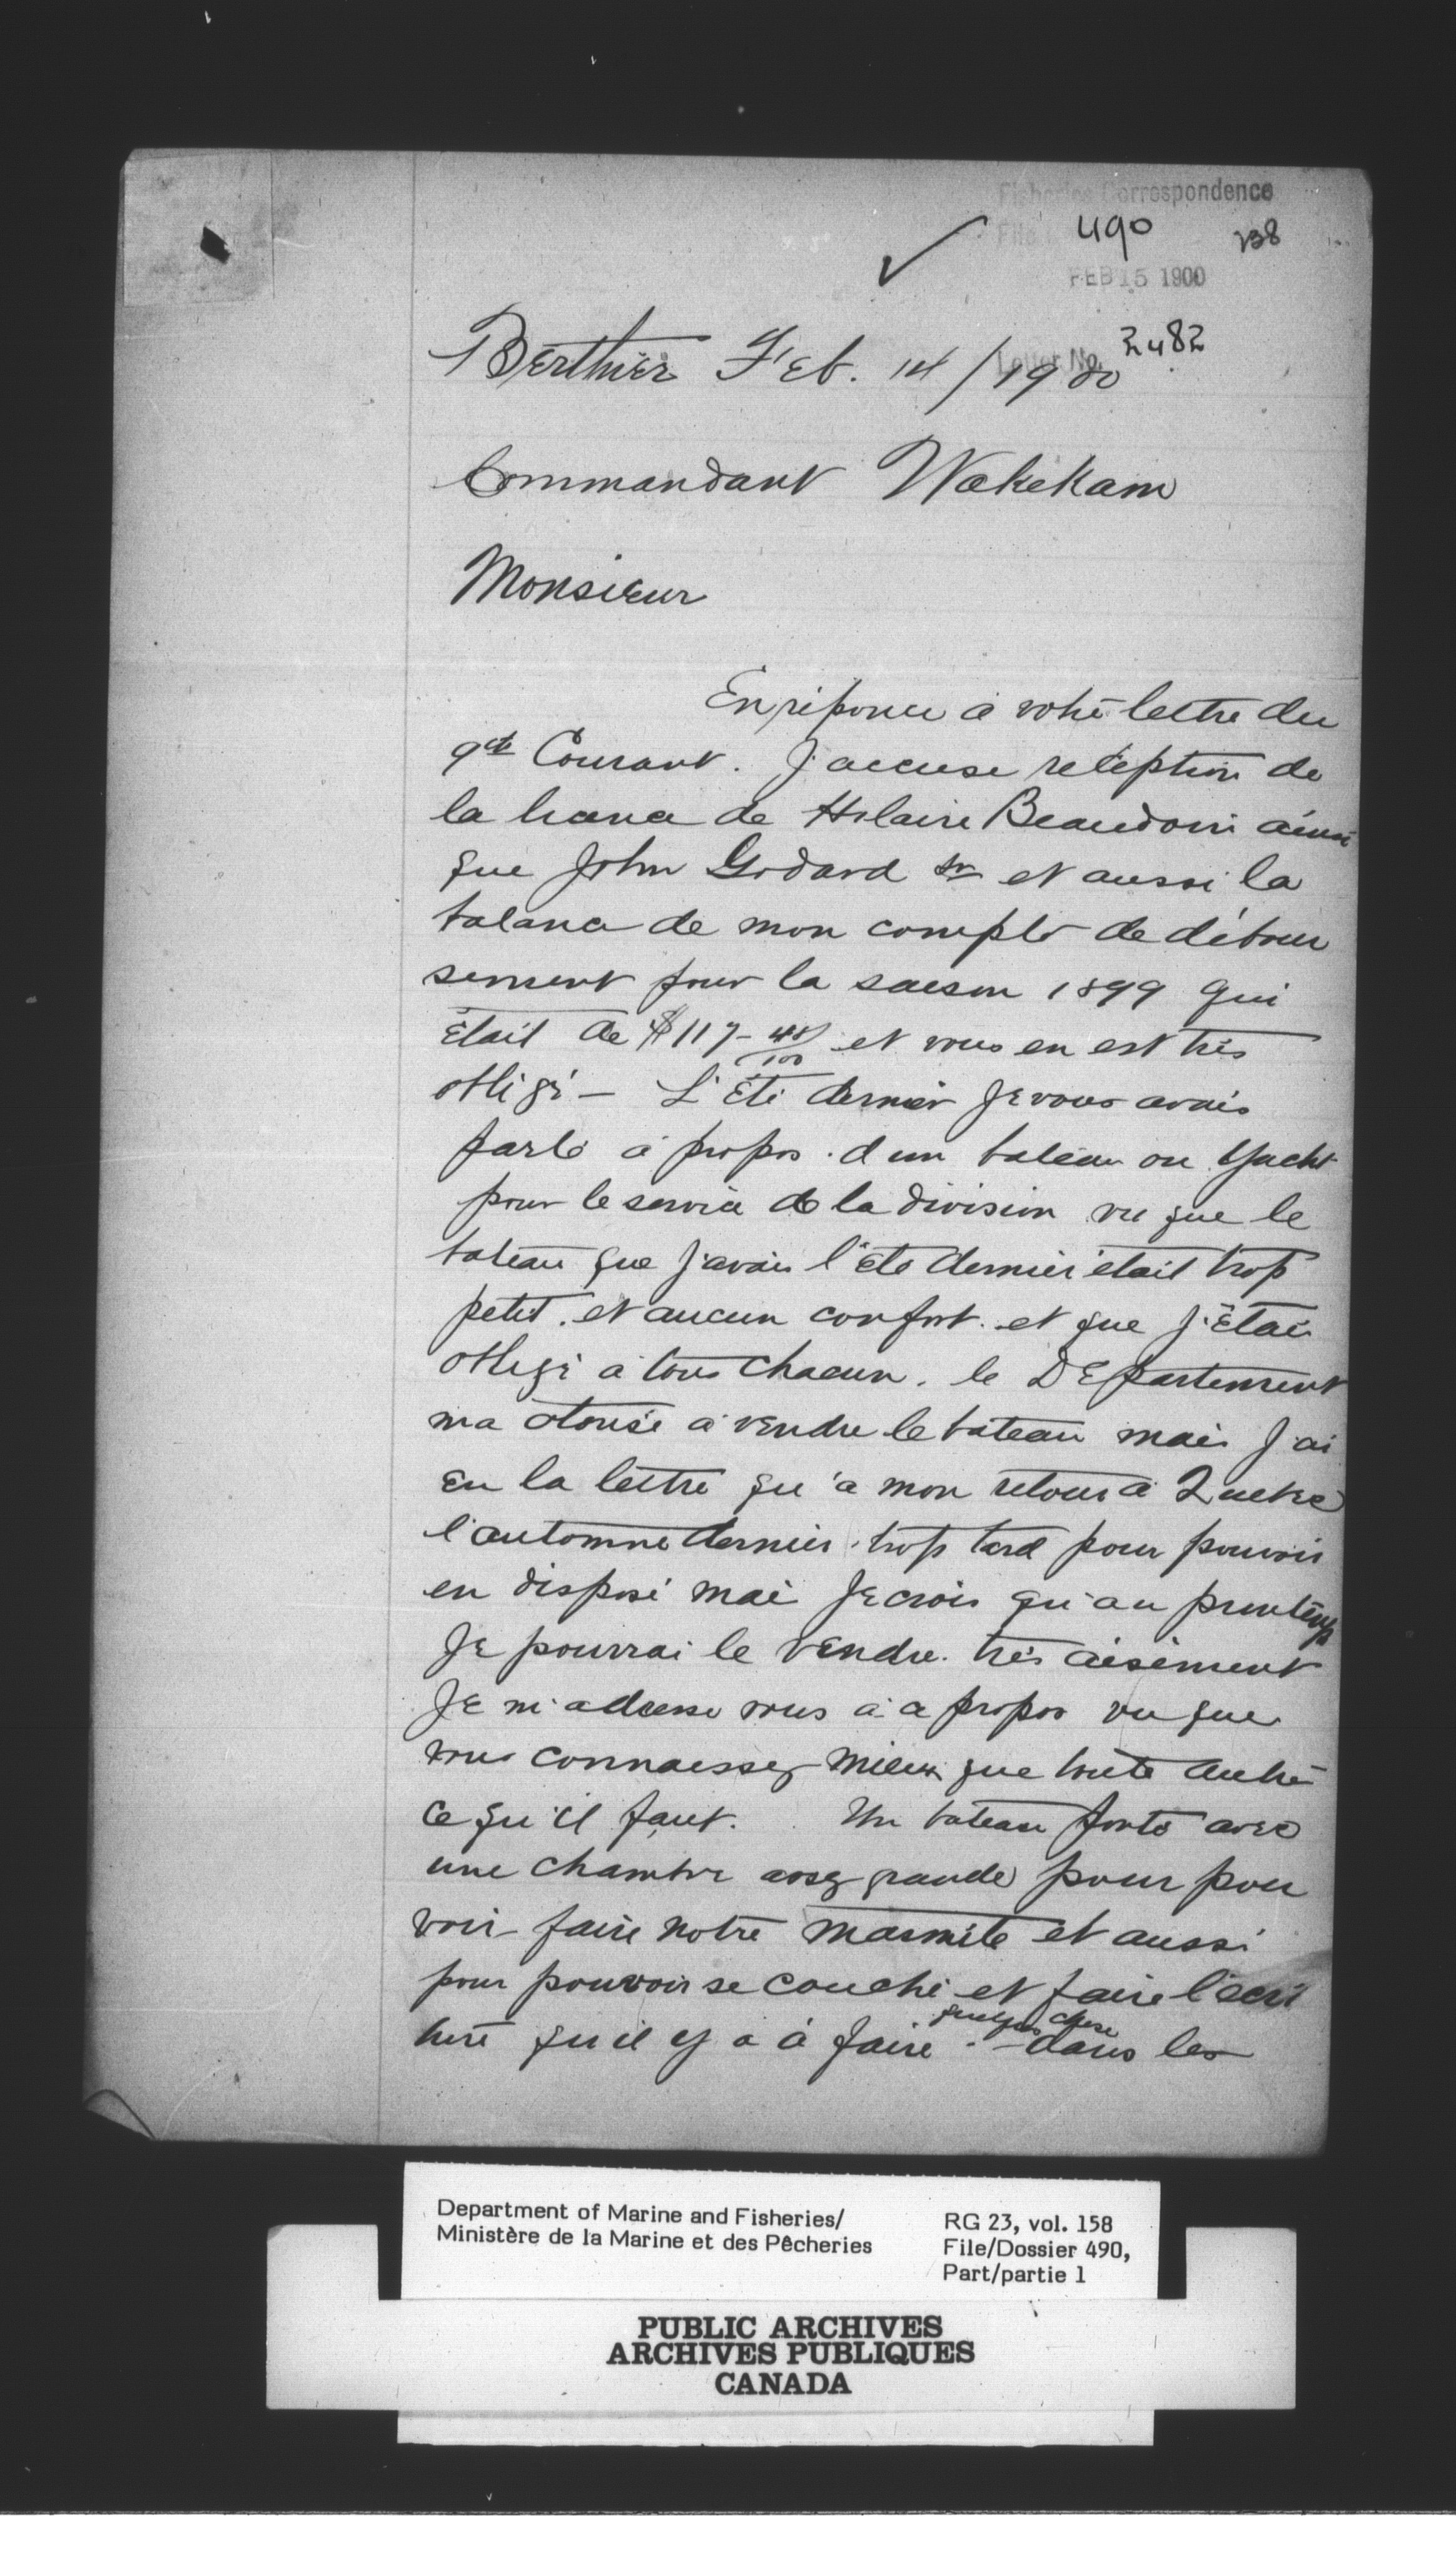 Fisheries Correspondence
File 490 238
FEB 15 1900
Letter No. 2482
Berthier Feb. 14/1900
Commandant Wakeham
Monsieur
En réponce a votre lettre du
9th Courant. J'accuse reception de
la licence de Hilaire Beaudoin ainsi
que John Godard Sr et aussi la
balance de mon compte de débour
sement pour la saison 1899 qui
Etait de $117-48/100 et vous en est très
obligé - L'Eté dernier Je vous avais
parlé à propos d'un bateau ou Yacht
pour le service de la division vu que le
bateau que j'avais l'été dernier était trop
petit. et aucun confort. et que j'Etais
obligé a tous chacun. le DEpartement
ma otorisé a vendre le bateau mais J'ai
Eu la lettre qu'a mon retour a Quebec
l'automne dernier trop tard pour pouvoir
en disposé mai JE crois qu'au printemps
JE pourrai le vendre très aisément
JE m'adresse vous a ce propos vu que
vous connaissez mieux que toute autre
ce qu'il faut. Un bateau forte avec
une chambre assez grande pour pou
voir faire notre marmite et aussi
pour pouvoir se couché et faire l'ecri
ture qu'il y a à faire. - quelque chose dans les
Department of Marine and Fisheries/
Ministère de la Marine et des Pêcheries
RG 23, vol. 158
File/Dossier 490,
Part/partie 1
PUBLIC ARCHIVES
ARCHIVES PUBLIQUES
CANADA